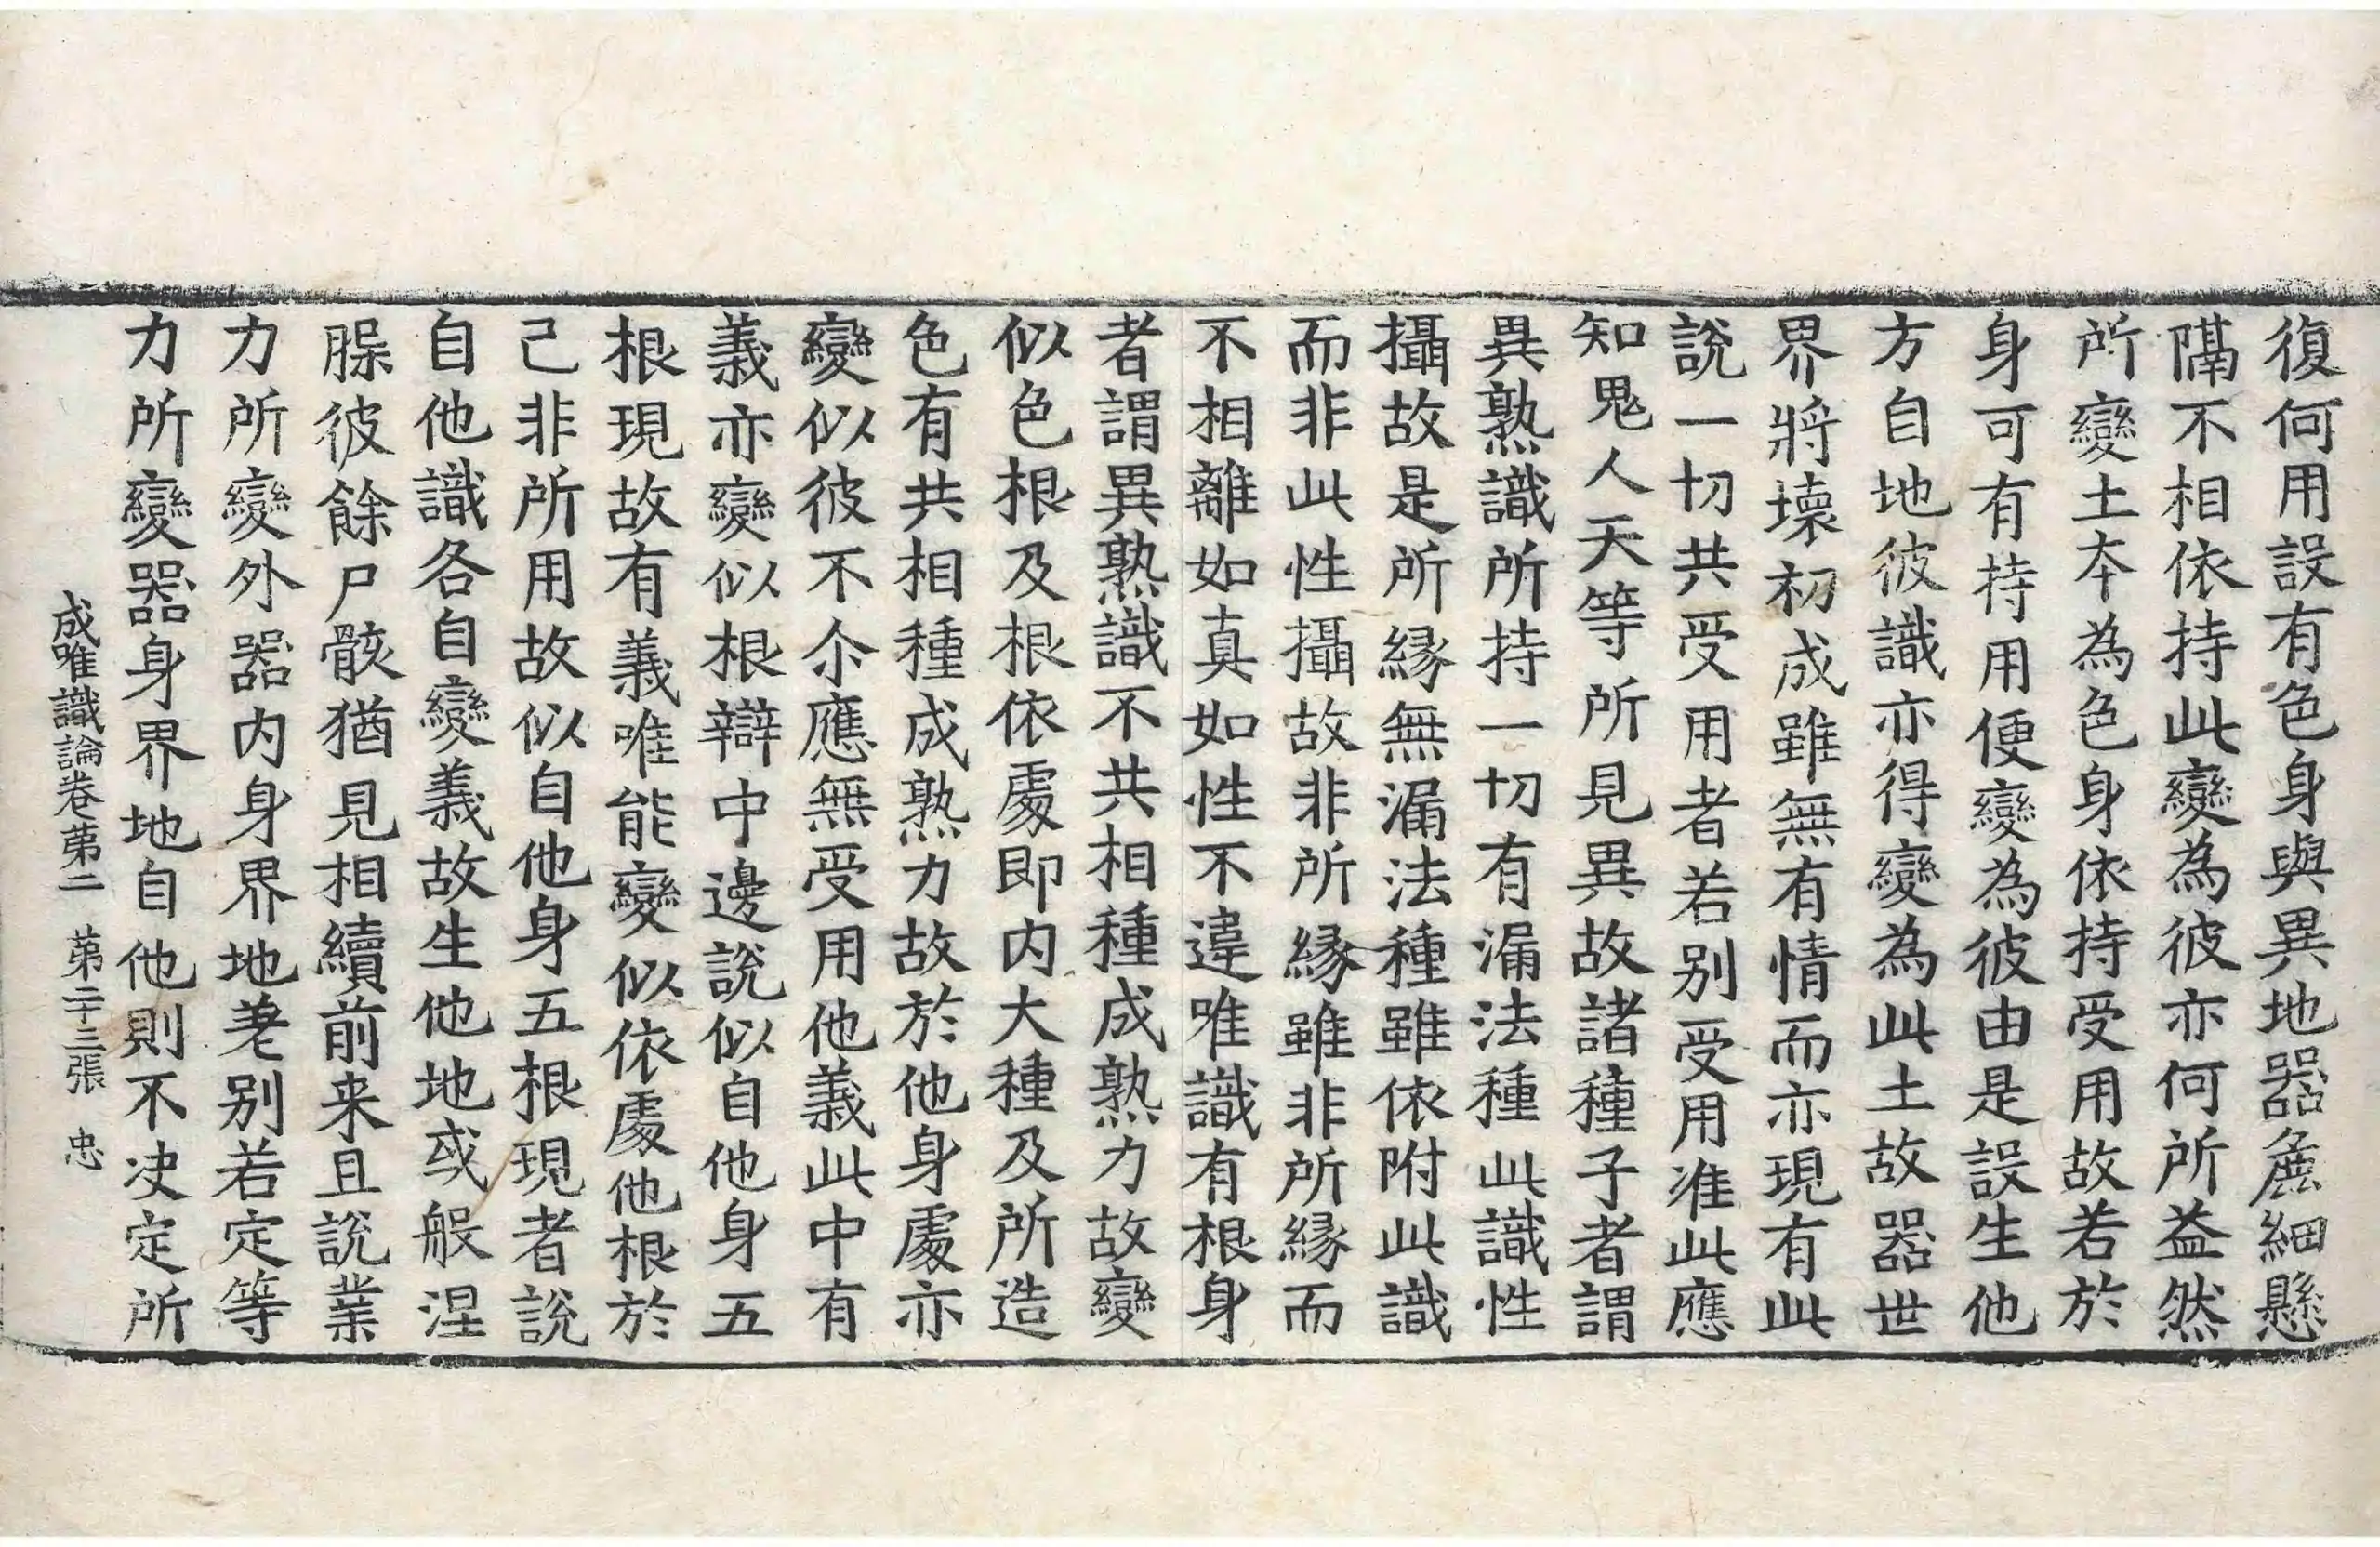 復何用設有色身與異地器麁細懸
隔不相依持此變為彼亦何所益然
所變土本為色身依持受用故若於
身可有持用便變為彼由是設生他
方自地彼識亦得變為此土故器世
界將壞初成雖無有情而亦現有此
說一切共受用者若別受用准此應
知鬼人天等所見異故諸種子者謂
異熟識所持一切有漏法種此識性
攝故是所縁無漏法種雖依附此識
而非此性攝故非所縁雖非所縁而
不相離如真如性不違唯識有根身
者謂異熟識不共相種成熟力故變
似色根及根依處即内大種及所造
色有共相種成熟力故於他身處亦
變似彼不尒應無受用他義此中有
義亦變似根辯中邊說似自他身五
根現故有義唯能變似依處他根於
己非所用故似自他身五根現者說
自他識各自變義故生他地或般涅
𦞦彼餘尸骸猶見相續前来且說業
力所變外器内身界地差别若定等
力所變器身界地自他則不决定所
成唯識論卷第二　第二十三張　忠